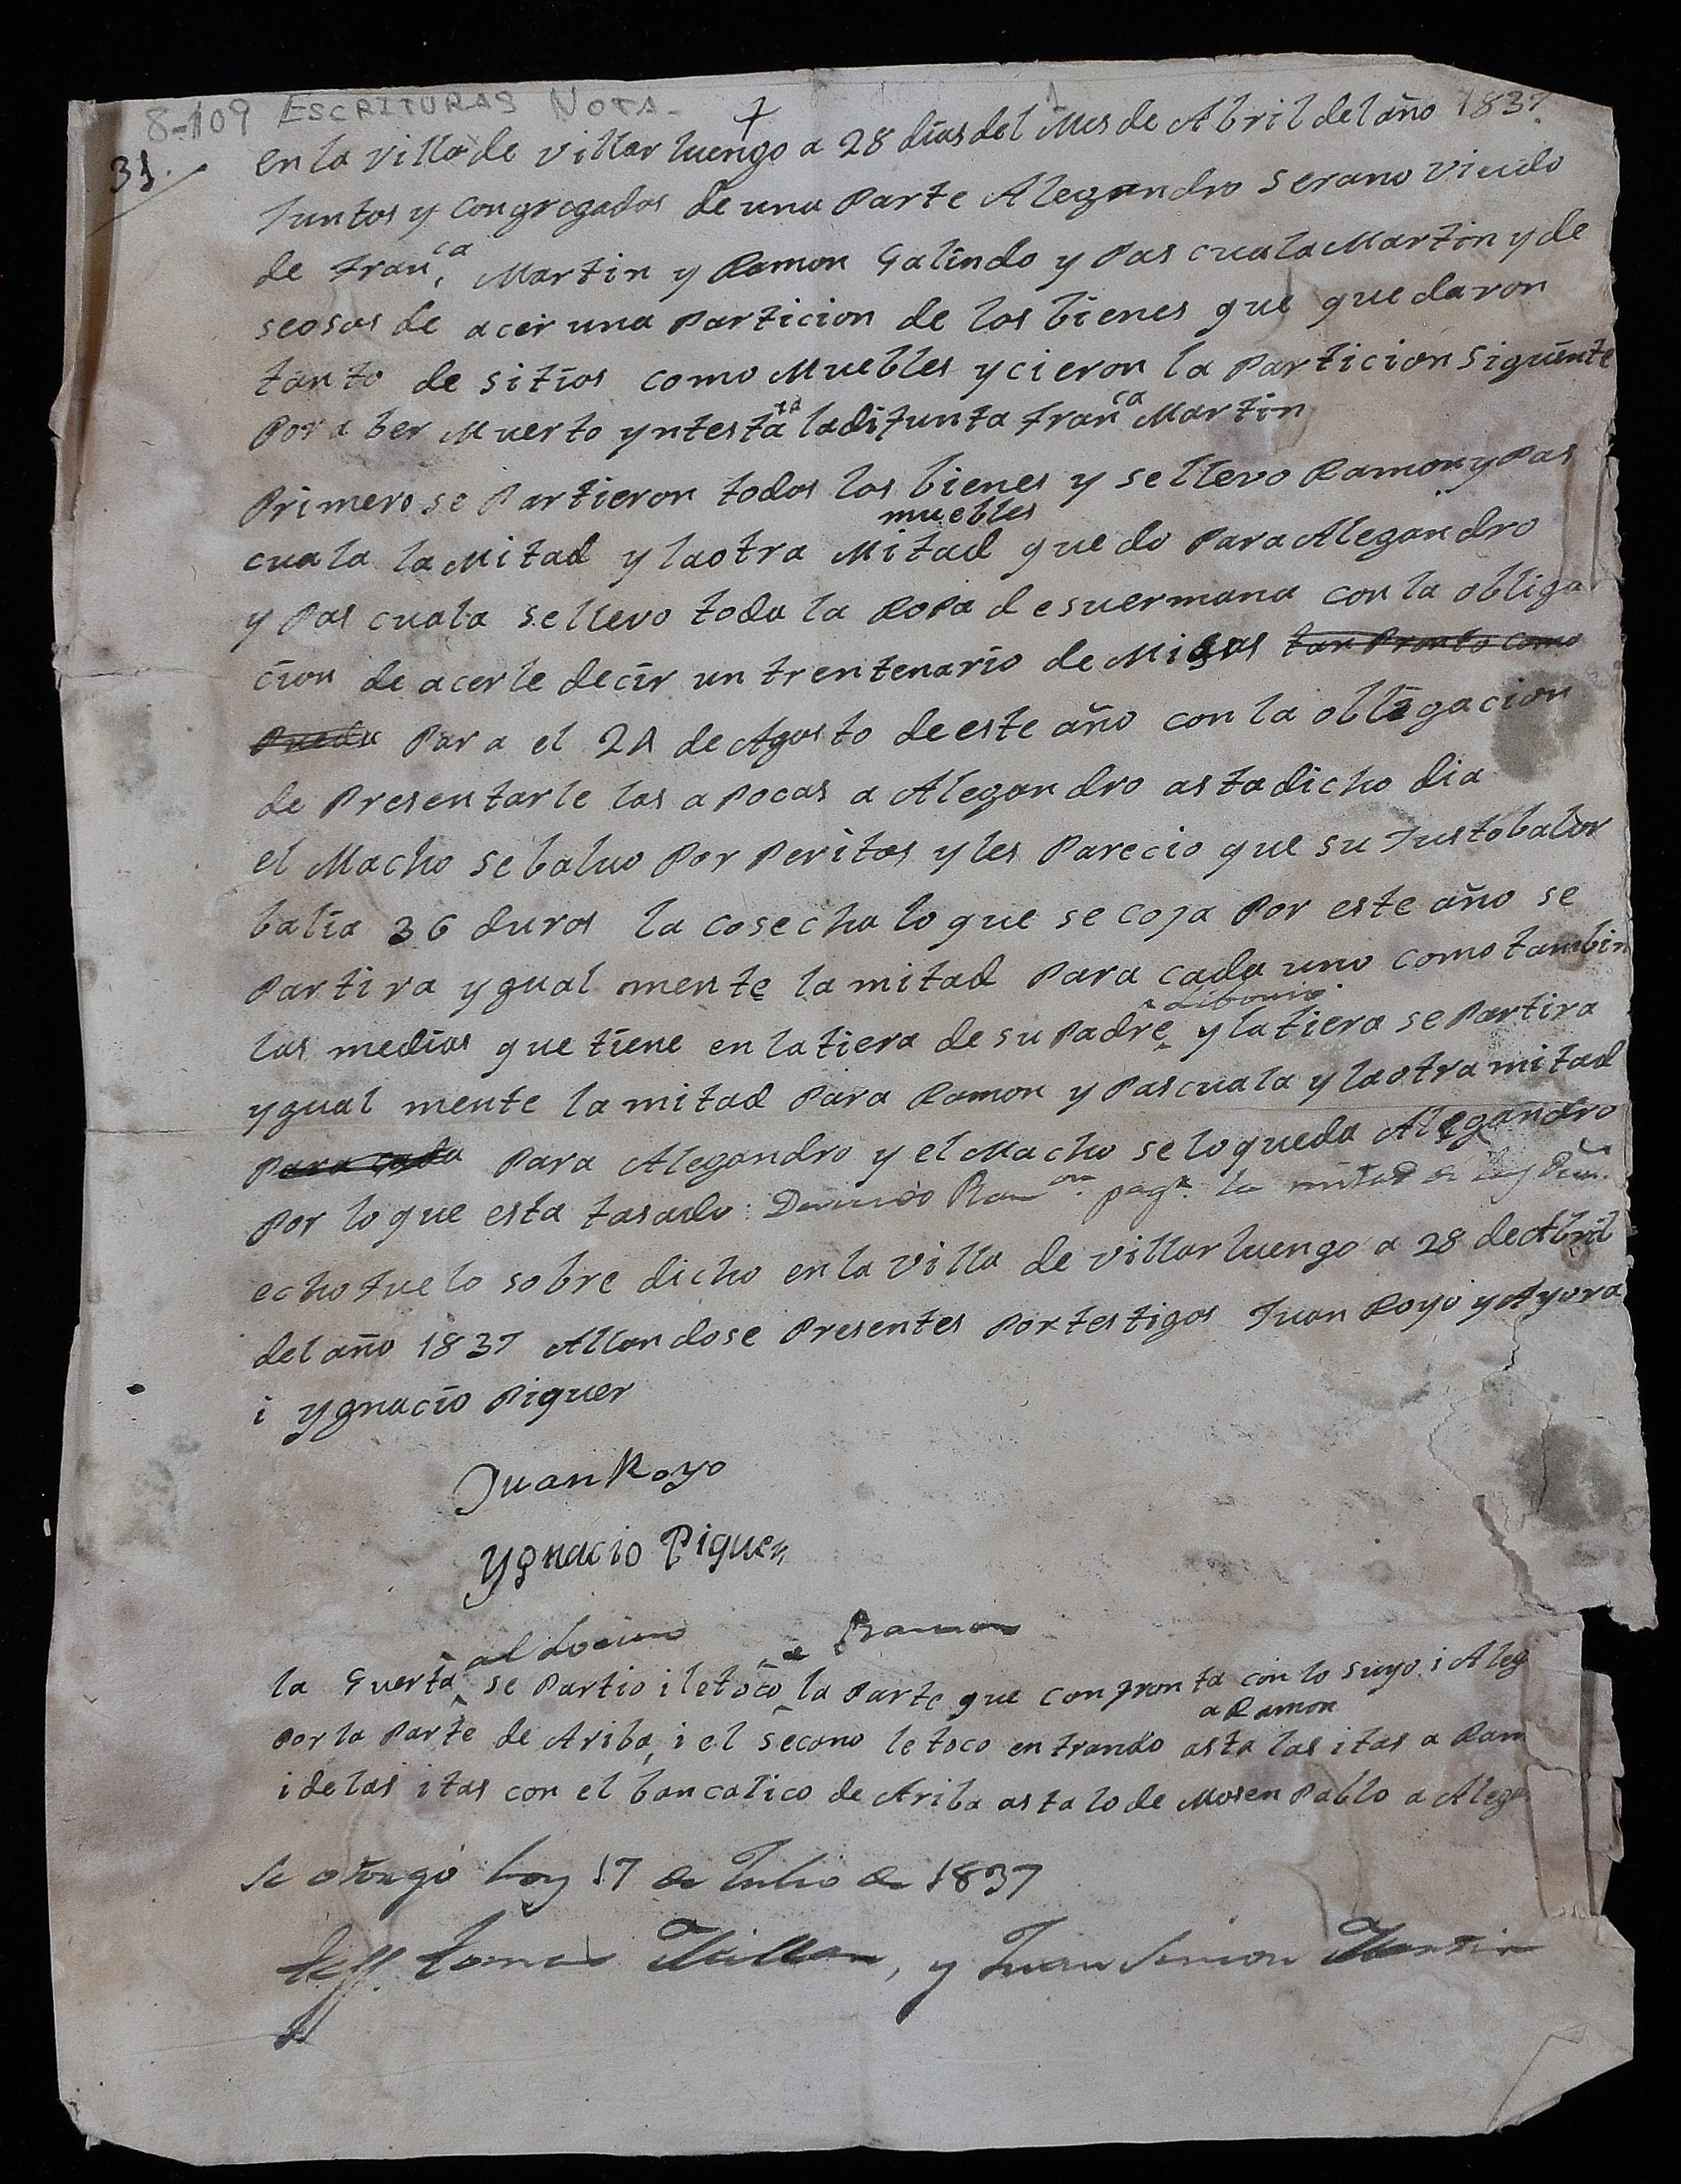 8-109 ESCRITURAS NOTA-
1
31.
en la villa de villarluengo a 28 dias del Mes de Abril del año 1837
Juntos y congregados de una Parte Alegandro Serano viudo
de Fran.ca Martin y Ramon Galindo y Pascuala Martin y de
seosos de acer una Particion de los bienes que quedaron
tanto de sitios como Muebles ycieron la Particion siguente
Por a ber Muerto yntestata la difunta Fran.ca Martin
Primero se Partieron todos los bienes y se llevo Ramon y Pas
muebles
cuala la Mitad y la otra Mitad quedo Para Alegandro
y Pascuala se llevo toda la Ropa de su ermana con la obliga
cion de acerle decir un trentenario de Misas tan Pronto como
Pueda Para el 24 de Agosto de este año con la obligacion
de Presentarle las apocas a Alegandro asta dicho dia
el Macho se baluo Por Peritos y les Parecio que su Justo balor
balia 36 duros la cosecha lo que se coja Por este año se
Partira ygual mente la mitad Para cada uno como tambin
las medias que tiene en la tiera de su Padre y la tiera se Partira
ygual mente la mitad Para Ramon y Pascuala y la otra mitad
Para cada Para Alegandro y el Macho se lo queda Alegandro
Por lo que esta tasado: Ram.on pag.r la mitad
echo fue lo sobre dicho en la Villa de Villarluengo a 28 de Abril
del año 1837 Allandose Presentes Por testigos Juan Royo y Ayora
i ygnacio Piquer
Juan Royo
Ygnacio Piquer
al a Ramon
la Guerta se Partio i le toco la Parte que confronta con lo suyo i Aleg
a Ramon
Por la Parte de Ariba, i el secano le toco entrando asta las itas a Ram
i de las itas con el bancalico de Ariba asta lo de Mosen Pablo a Aleg
Se otorgó hoy 17 de Julio de 1837
Tomas Millan, y Juan Simon Martin